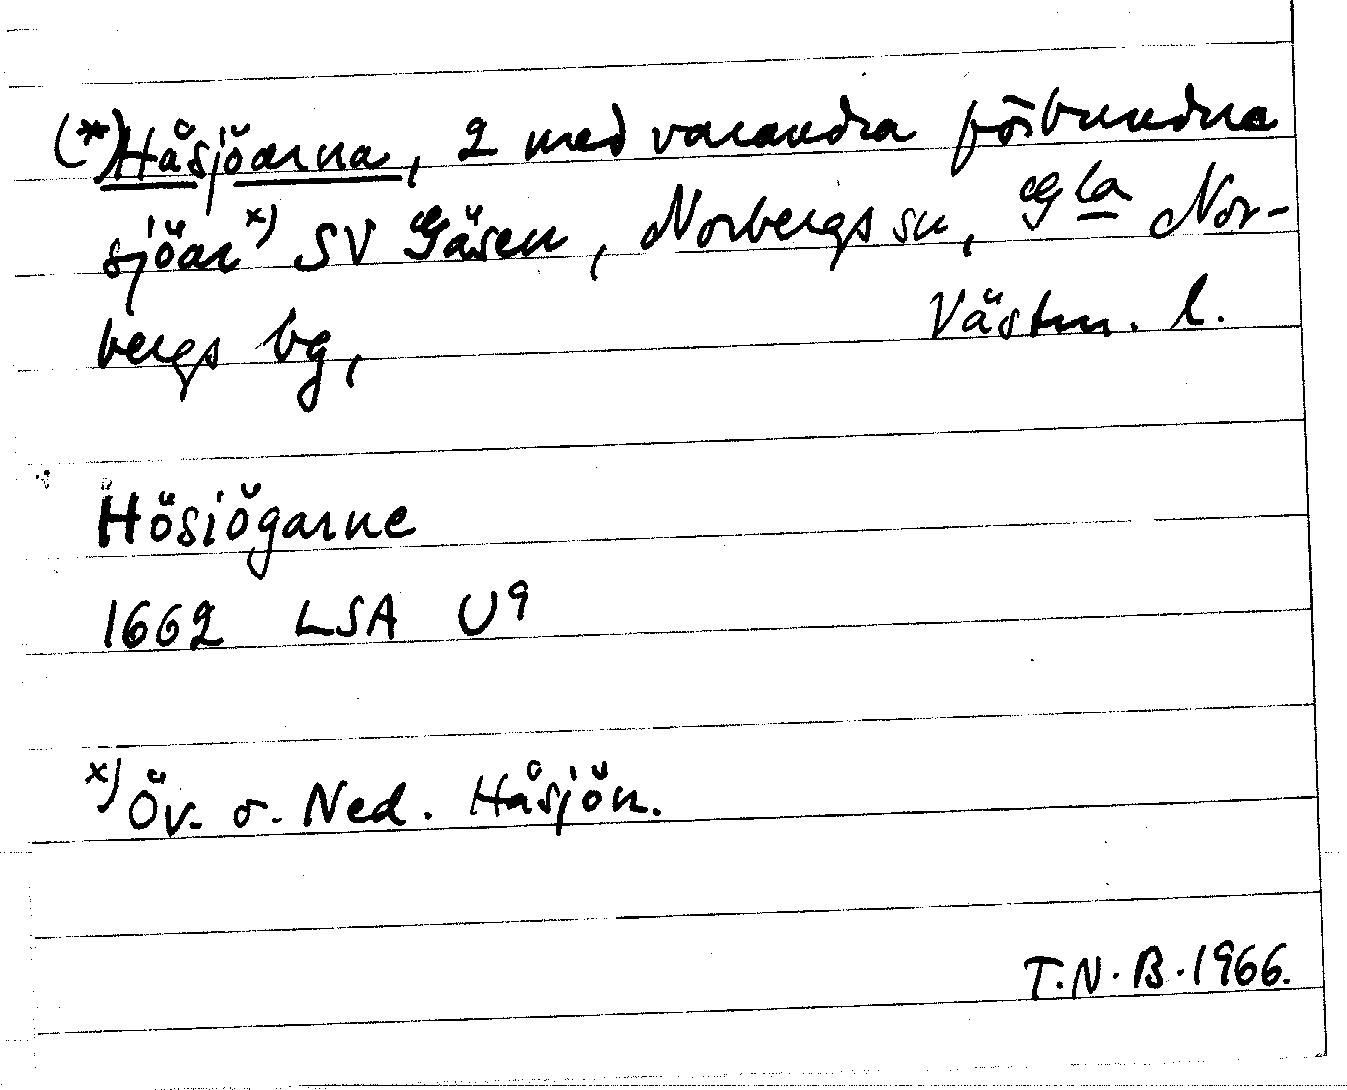 (*)Håsjöarna, 2 med varandra förbundna
sjöar x) SV Gäsen, Norbergs sn, Gla Nor-
bergs bg, Västm. l.
Hösiögarne
1662 LSA U9
x) Öv. o. Ned. Håsjön.
T.N.B. 1966.